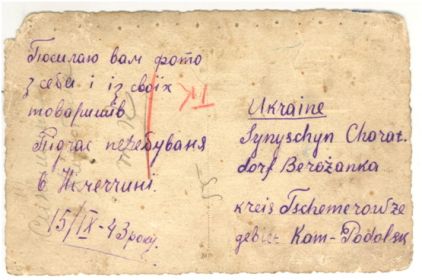 Посилаю вам фото
з себи і із своїх
товаришів
Підчас перебуваня
в Німеччині.
15/IX-43 року.
ТК
Ukraine
Synyschyn Charat.
dorf Berożanka
kreis Tschemerowze
gebiet Kam-Podolsk